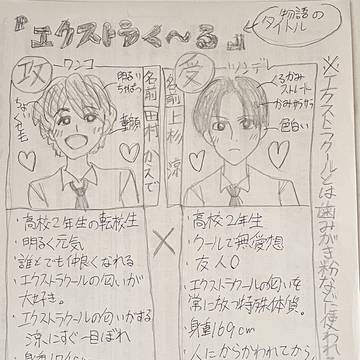 『エクストラく〜る』
物語の
タイトル
攻
ワンコ
明るい
ちゃぱつ
童顔
ちょいくせ毛
名前 田村 かえで
受
ツンデレ
くろかみ
ストレート
かみサラサラ
色白い
名前 上杉 涼
※エクストラクールとは歯みがき粉などに使われる
・高校2年生の転校生
・明るく元気
・誰とでも仲良くなれる
・エクストラクールの匂いが
大好き。
・エクストラクールの匂いがする
涼にすぐ一目ぼれ
×
・高校2年生
・クールで無愛想
・友人0
・エクストラクールの匂いを
常に放つ特殊体質。
・身重169cm
・人にからかわれてから